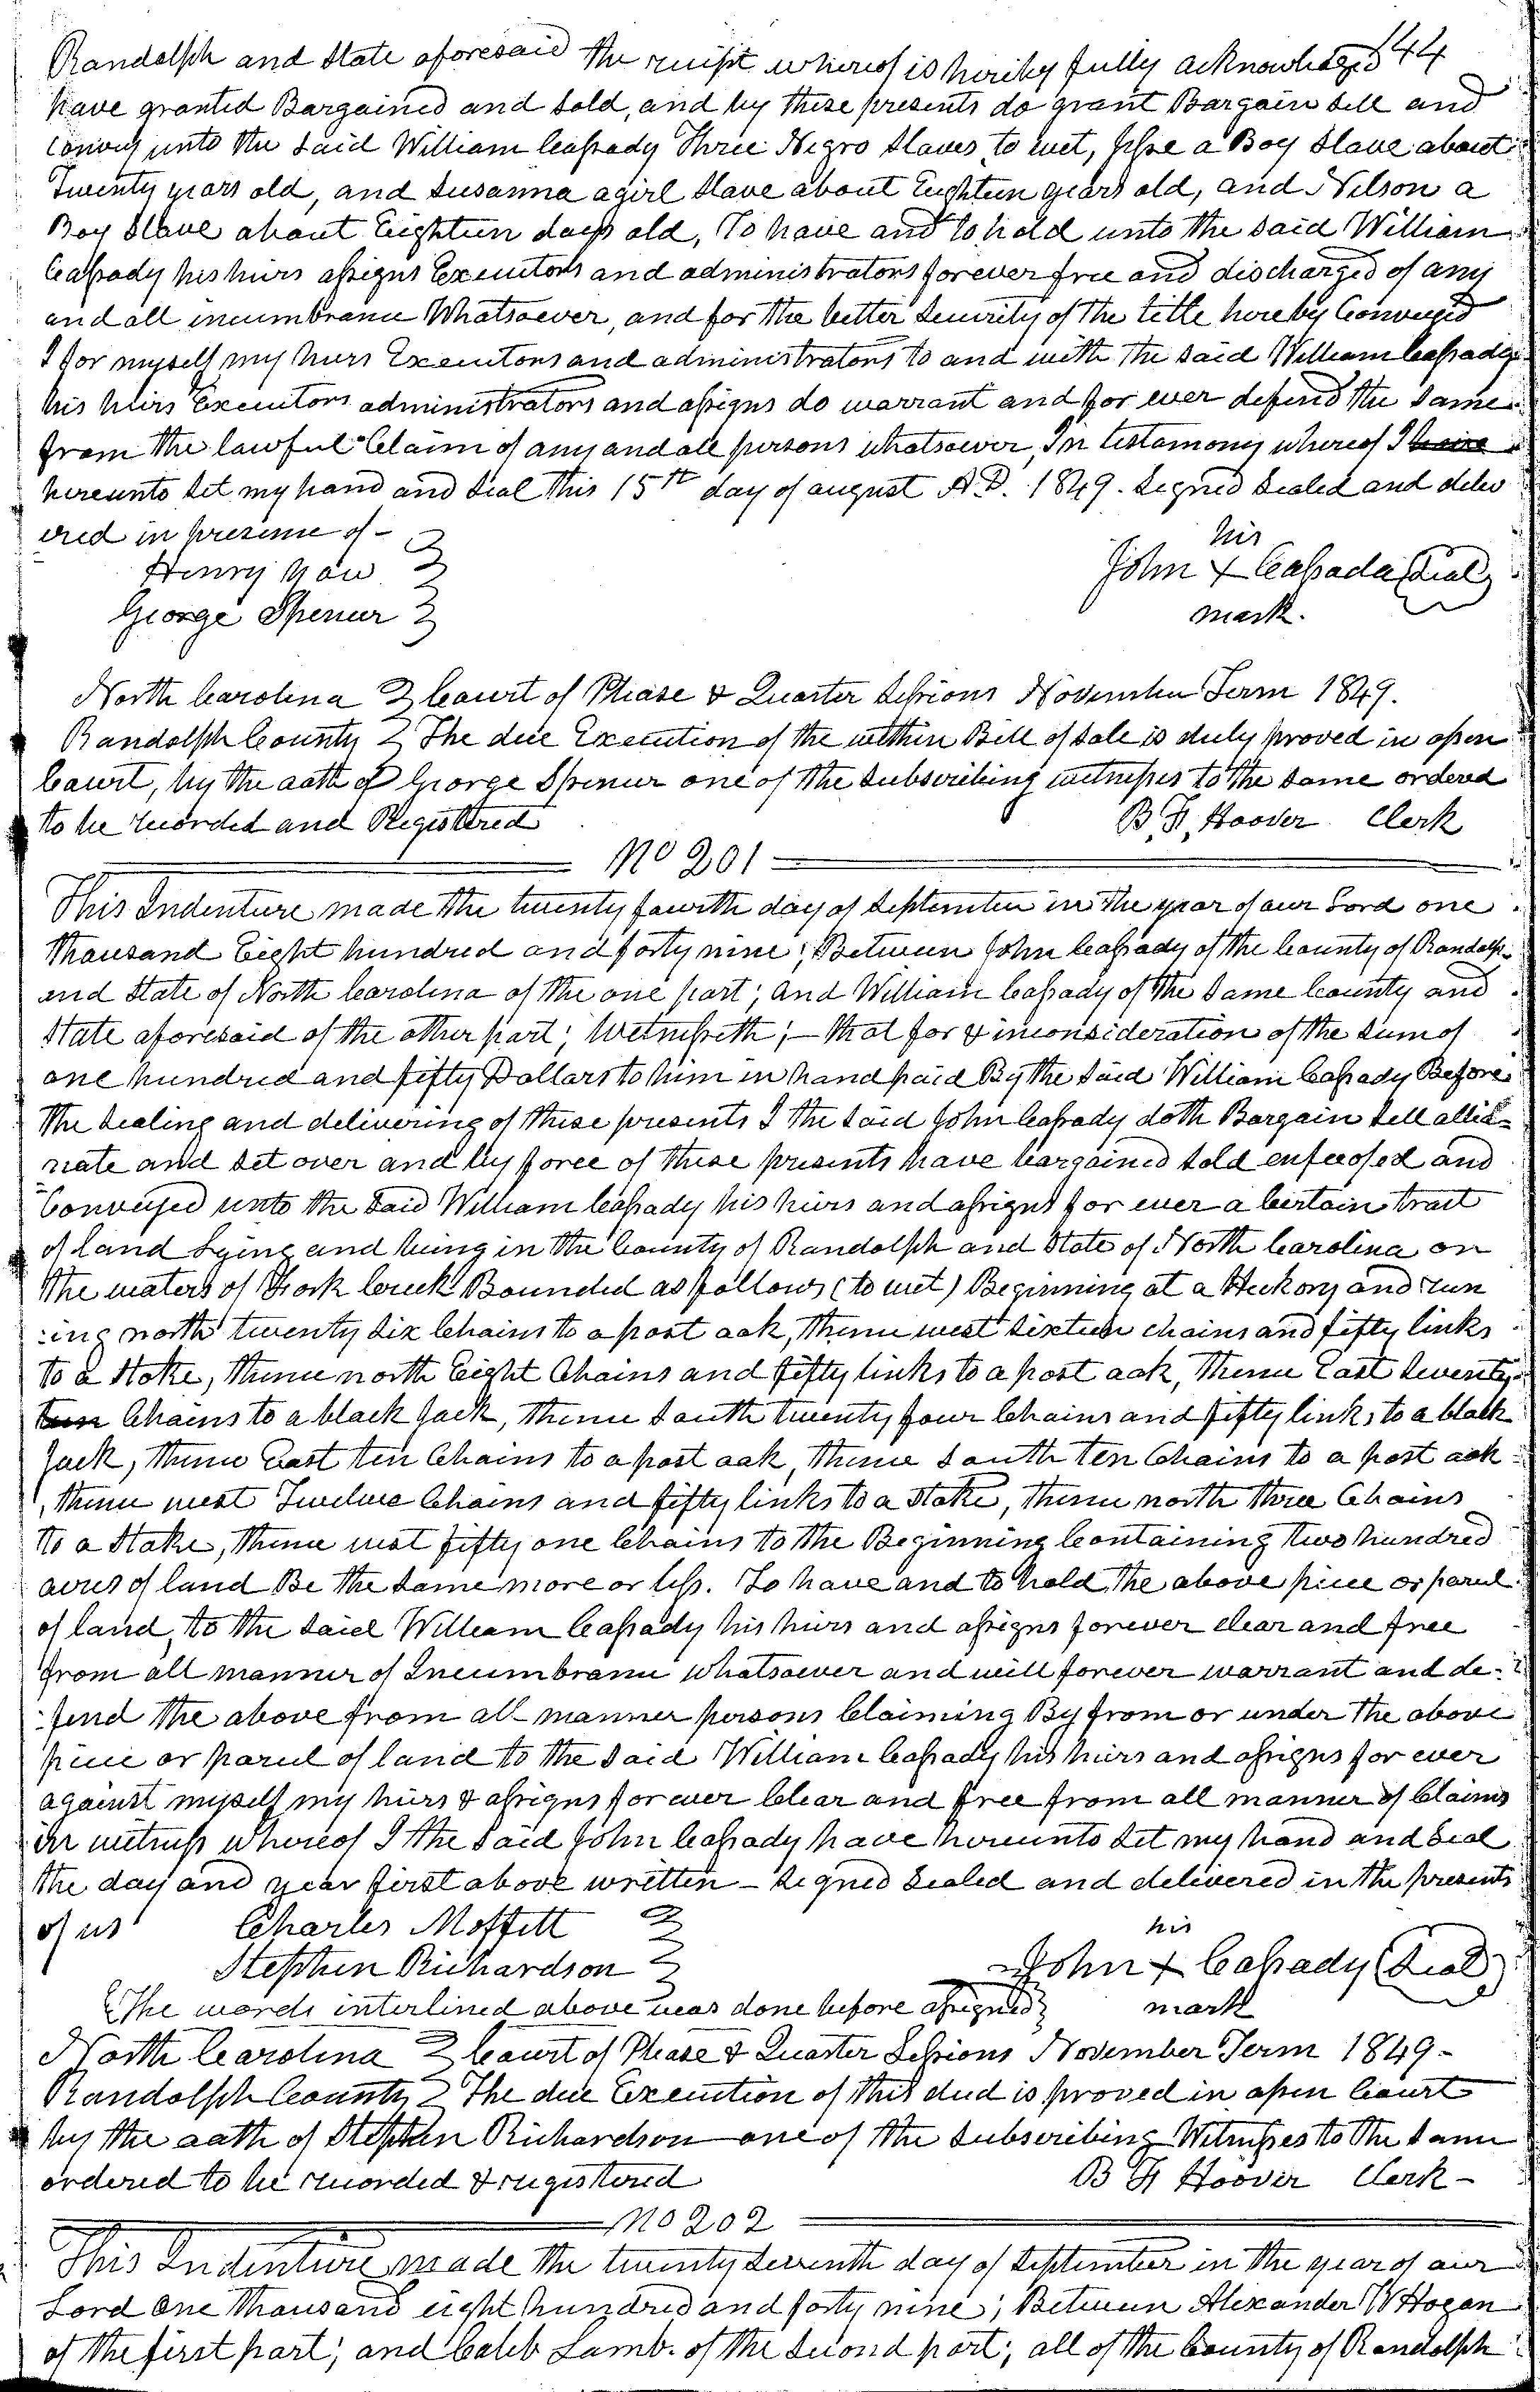 144
Randolph and State aforesaid the receipt whereof is hereby fully acknowledged
have granted Bargained and sold, and by these presents do grant Bargain sell and
convey unto the said William Cassady Three Negro Slaves, to wit, Jesse a Boy Slave about
Twenty years old, and Susanna a girl Slave about Eighteen years old, and Nelson a
Boy Slave about Eighteen days old, To have and to hold unto the said William
Cassady his heirs assigns Executors and administrators forever free and discharged of any
and all incumbrance Whatsoever, and for the better security of the title hereby Conveyed
I for myself my heirs Executors and administrators to and with the said William Cassady
his heirs Executors administrators and assigns do warrant and for ever defend the same
from the lawful Claim of any and all persons whatsoever, In testamony whereof I have
hereunto set my hand and seal this 15th day of august A.D. 1849. Signed Sealed and deliv
ered in presence of -
his
Henry Yow
John X Cassada (Seal)
George Spencer
mark.
North Carolina } Court of Please & Quarter Sessions November Term 1849.
Randolph County } The due Execution of the within Bill of Sale is duly proved in open
Court, by the oath of George Spencer one of the subscribing witnesses to the same ordered
to be recorded and Registered
B. F. Hoover Clerk
No 201
This Indenture made the twenty fourth day of September in the year of our Lord one
thousand Eight hundred and forty nine; Between John Cassady of the County of Randolph
and State of North Carolina of the one part; and William Cassady of the same County and
State aforesaid of the other part; Witnesseth;- that for & in consideration of the sum of
one hundred and fifty Dollars to him in hand paid By the said William Cassady Before
the sealing and delivering of these presents I the said John Cassady doth Bargain sell allie-
nate and set over and by force of these presents have bargained sold enfeofed and
Conveyed unto the said William Cassady his heirs and assigns for ever a Certain tract
of land Lying and being in the County of Randolph and State of North Carolina on
the waters of Fork Creek Bounded as follows (to wit) Beginning at a Hickory and run
ing north twenty six Chains to a post oak, thence west sixteen chains and fifty links
to a stake, thence north Eight Chains and fifty links to a post oak, thence East seventy
Chains to a black Jack, thence South twenty four Chains and fifty links to a black
Jack, thence East ten Chains to a post oak, thence South ten Chains to a post oak
, thence west Twelve Chains and fifty links to a stake, thence north three Chains
to a stake, thence west fifty one Chains to the Beginning Containing two hundred
acres of land Be the same more or less. To have and to hold the above piece or parcel
of land, to the said William Cassady his heirs and assigns forever clear and free
from all manner of Incumbrance whatsoever and will forever warrant and de-
fend the above from all manner persons Claiming By from or under the above
piece or parcel of land to the said William Cassady his heirs and assigns for ever
against myself my heirs & assigns forever Clear and free from all manner of Claims
in witness whereof I the said John Cassady have hereunto set my hand and seal
the day and year first above written - Signed Sealed and delivered in the presents
of us
Charles Moffitt
his
Stephen Richardson
John X Cassady (Seal)
The words interlined above was done before assigned
mark
North Carolina } Court of Please & Quarter Sessions November Term 1849-
Randolph County } The due Execution of this deed is proved in open Court
by the oath of Stephen Richardson one of the subscribing Witnesses to the same
ordered to be recorded & registered
B F Hoover Clerk -
No 202
This Indenture made the twenty seventh day of September in the year of our
Lord One thousand eight hundred and forty nine; Between Alexander W Hogan
of the first part; and Caleb Lamb. of the second part; all of the County of Randolph